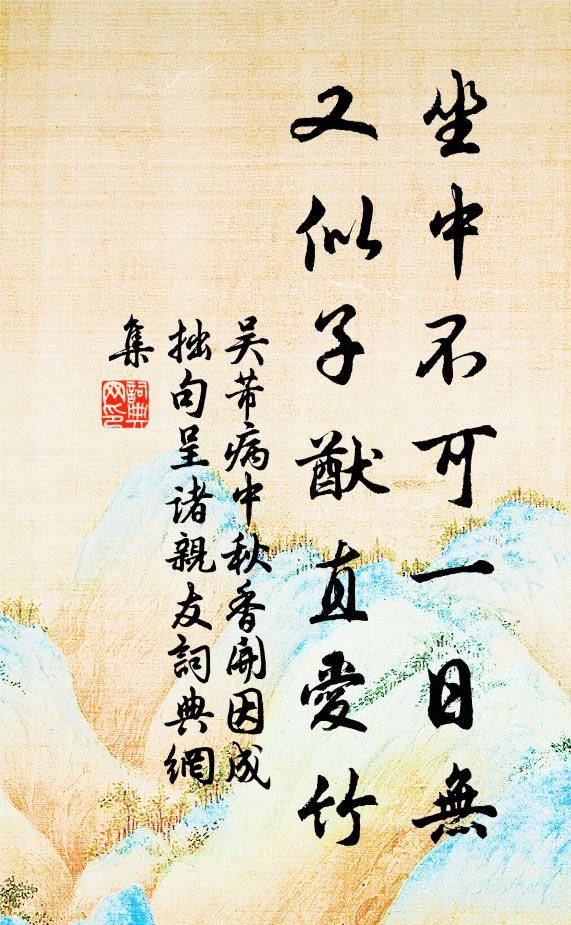 坐中不可一日無
又似子猷直愛竹
吴芾病中秋香開因成
拙句呈诸親友詞典網
集
詞典
网印